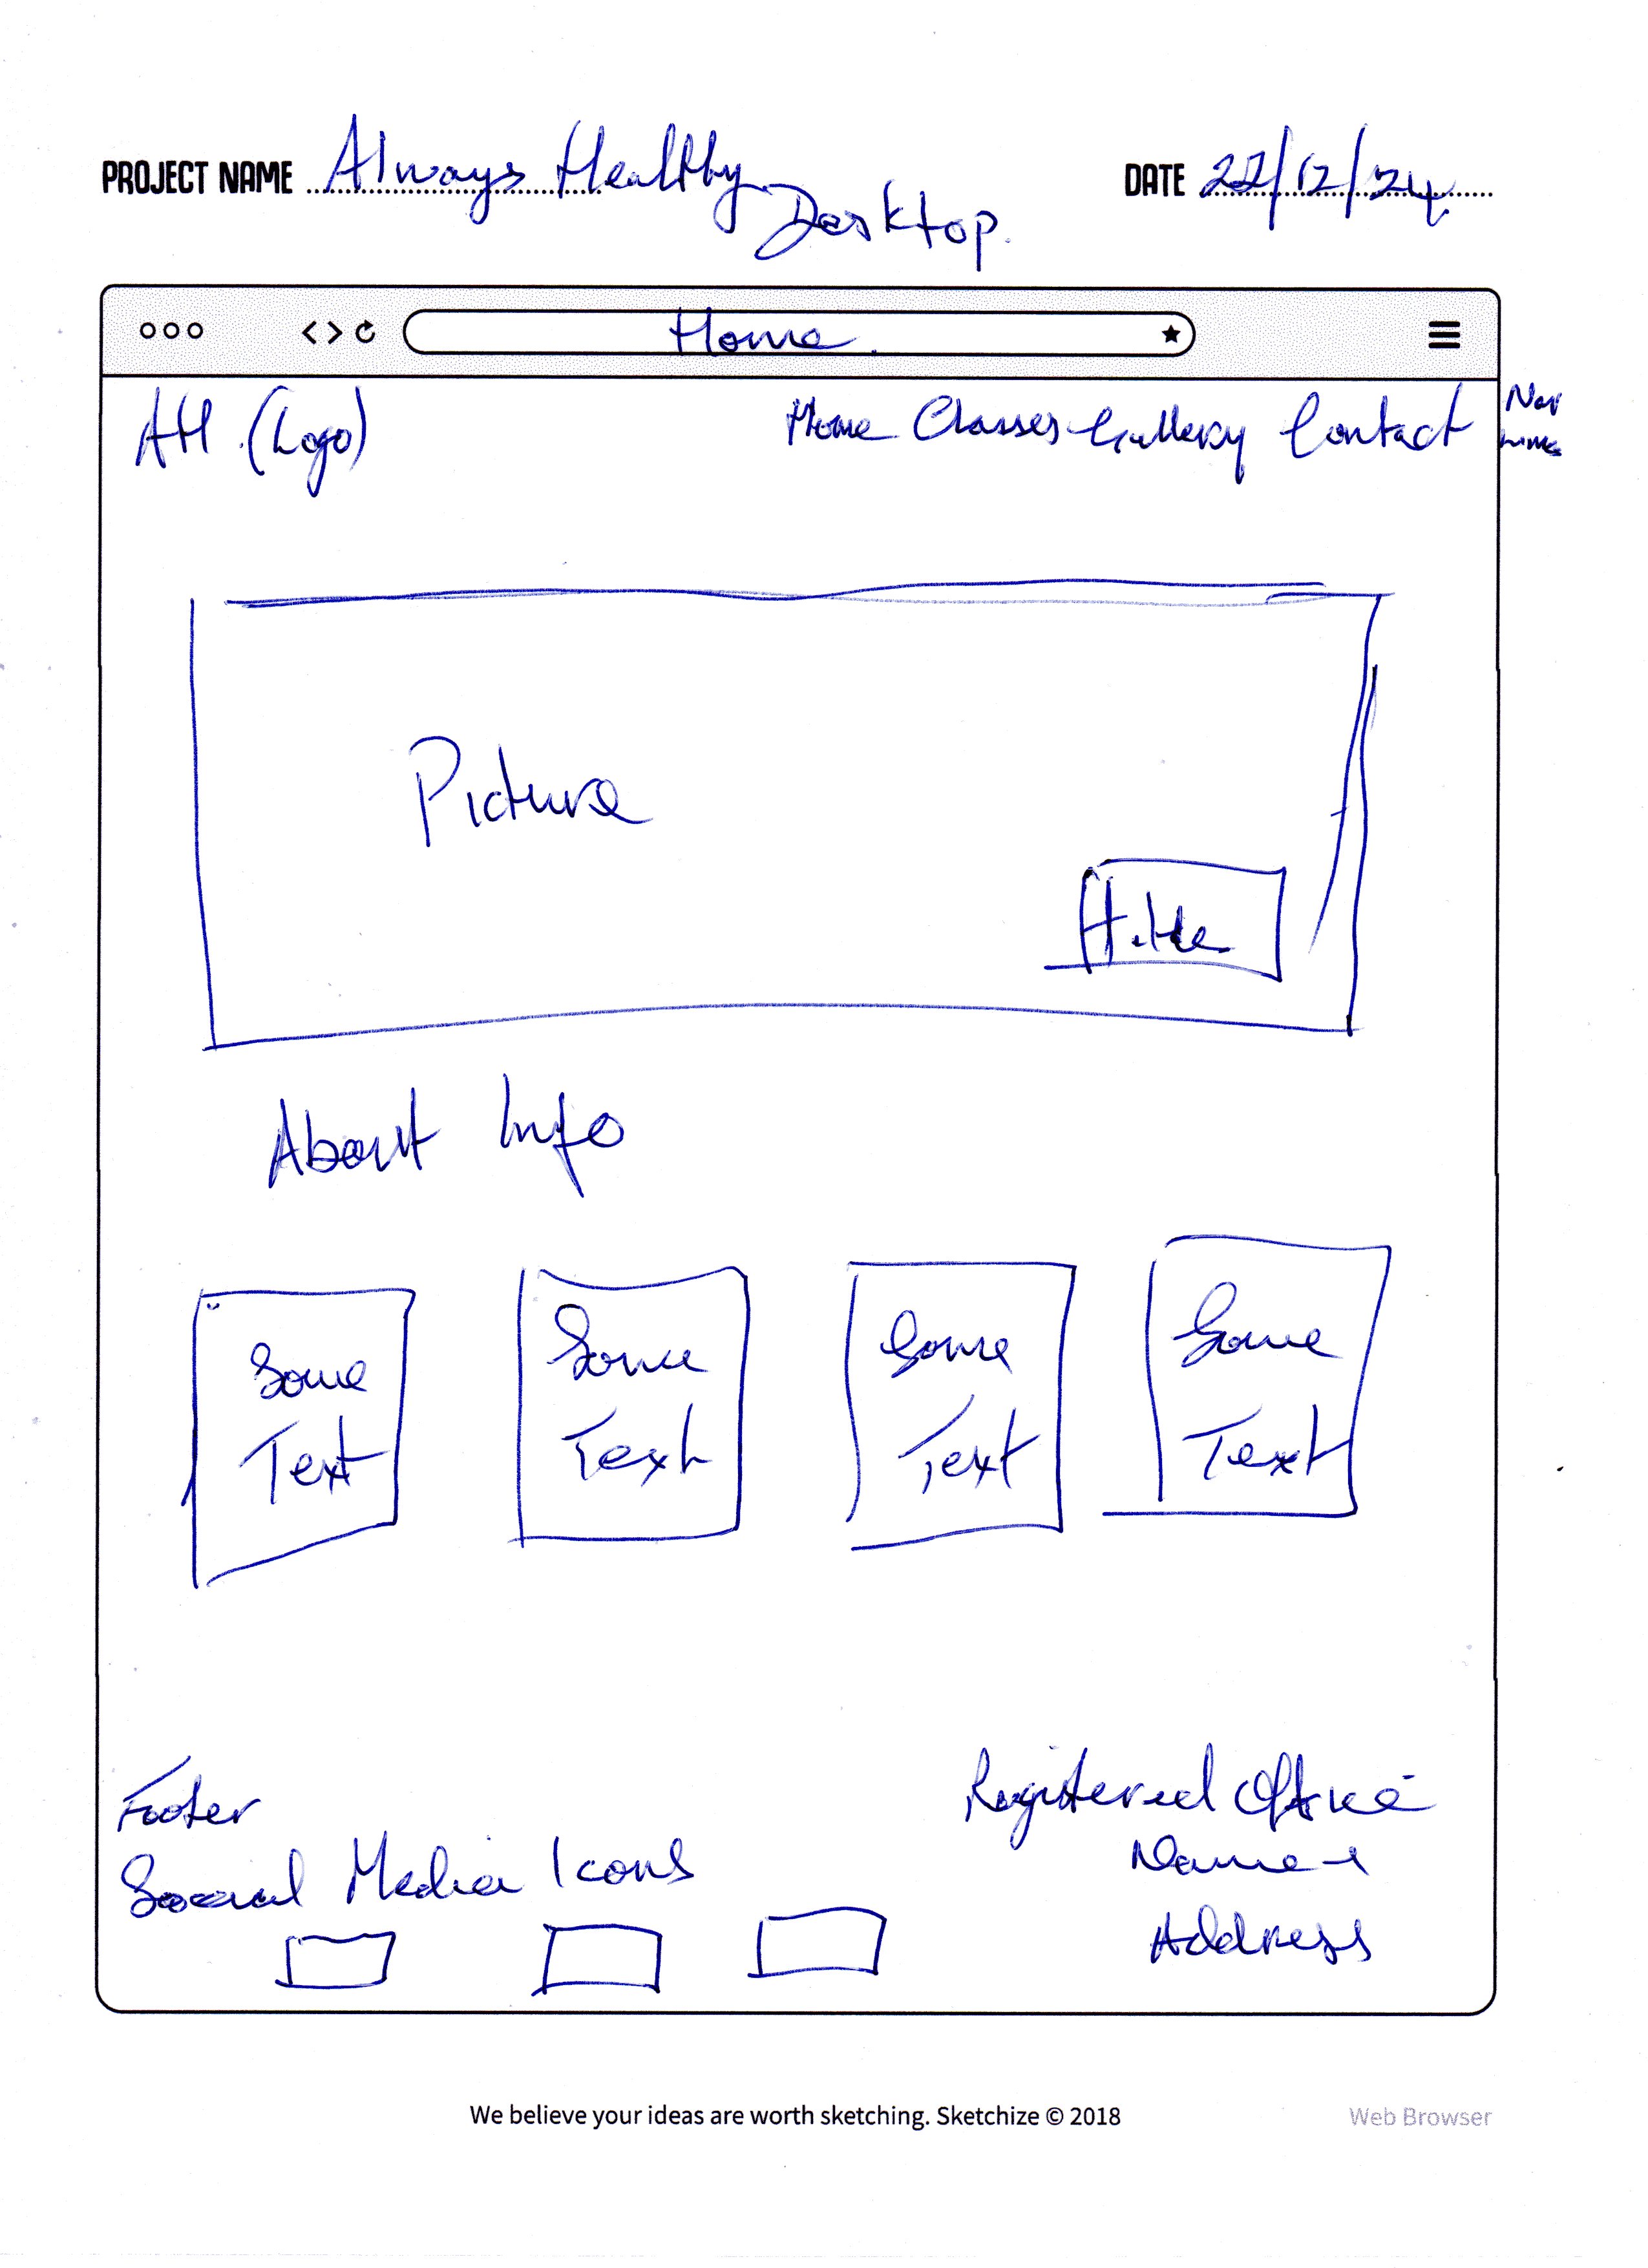 PROJECT NAME Always Healthy Desktop.
DATE 22/12/24
Home.
AH (Logo)
Home Classes Gallery Contact
Nav
Picture
Title
About Info
Some Text
Some Text
Some Text
Some Text
Footer
Social Media Icons
Registered Office
Name
Address
We believe your ideas are worth sketching. Sketchize © 2018
Web Browser